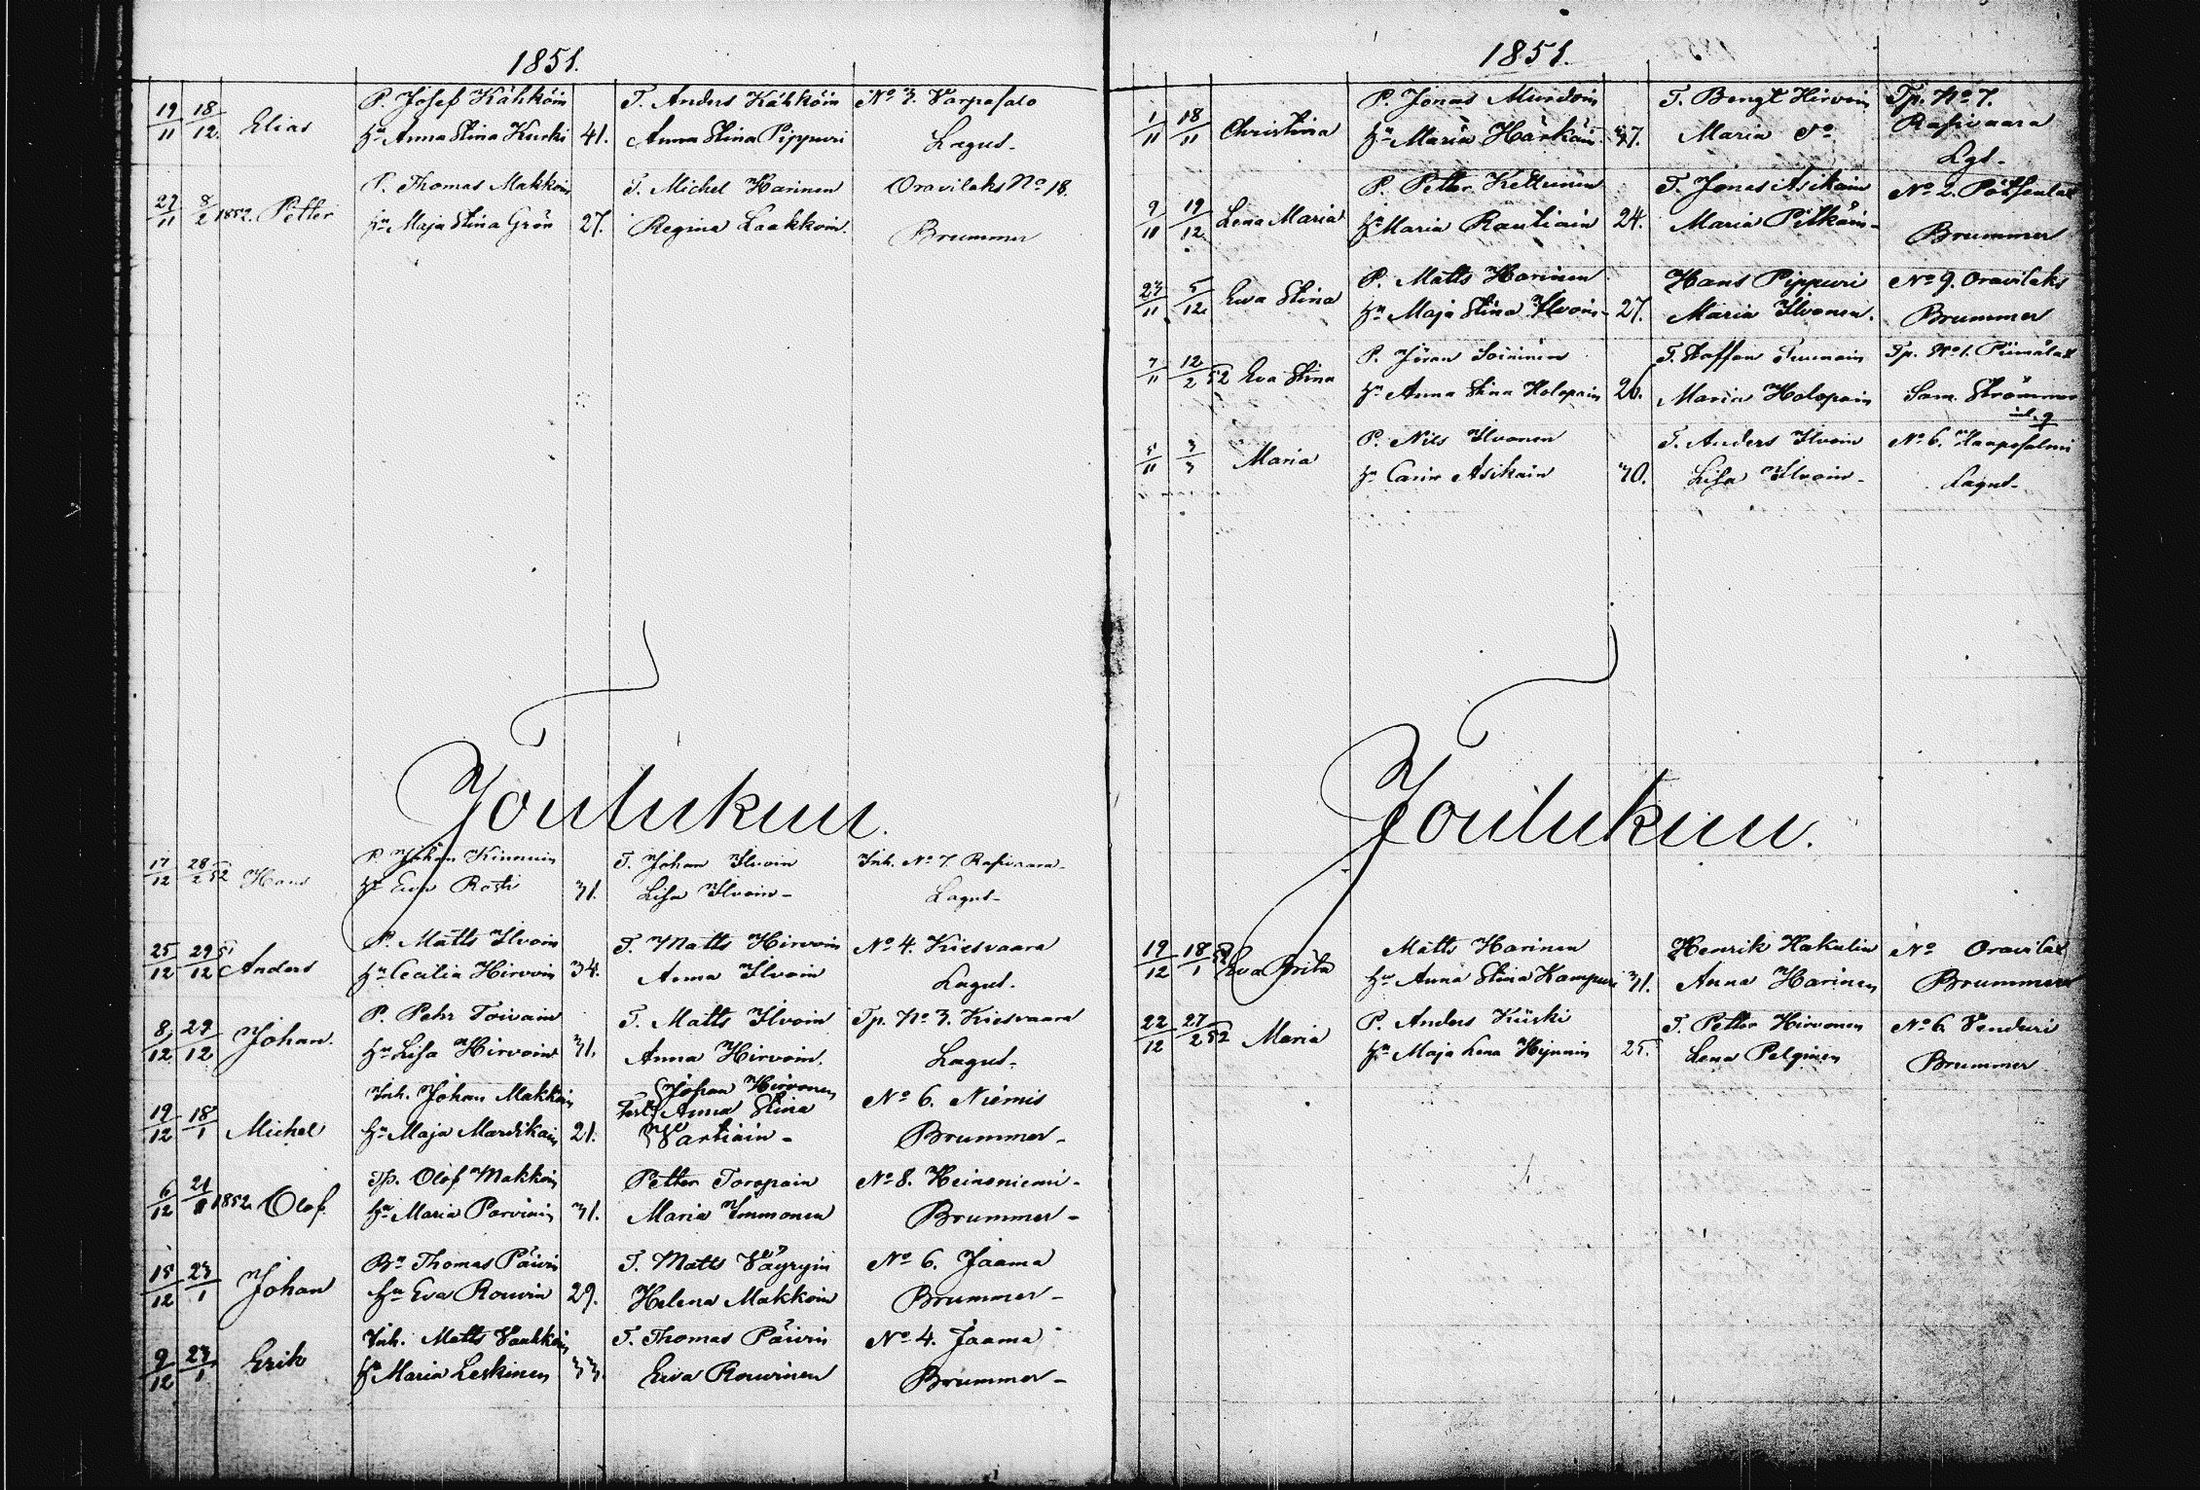 1851.
19/11 18/12 Elias P. Josef Kähköin T. Anders Kähköin No 3. Varpasalo
Hu Anna Stina Kuski 41. Anna Stina Pippuri Lagus-
27/11 8/2 1852. Petter P. Thomas Makkoin T. Michel Harinen Oravilaks No 18.
Hu Maja Stina Grön 27. Regina Laakkoin. Brummer
Joulukuu.
17/12 28/2 52 Hans P. Johan Kinnuin T. Johan Ilvoin Inh. No 7. Rasivaara-
Hu Eva Rosti 31. Lisa Ilvoin- Lagus-
25/12 29/12 51 Anders P. Matts Ilvoin T. Matts Hirvoin No 4. Kiesvaara
Hu Cecilia Hirvoin 34. Anna Ilvoin Lagus.
8/12 29/12 Johan. P. Pehr Toivain T. Matts Ilvoin Tp. No 3. Kiesvaara
Hu Lisa Hirvoin 31. Anna Hirvoin. Lagus-
19/12 18/1 Michel Inh. Johan Makkoin Johan Hirvonen No 6. Niemis
Anna Stina
Hu Maja Mardikain 21. Vartiain- Brummer-
6/12 21/1 1852 Olof Tp. Olof Makkoin Petter Toropain No 8. Heinoniemi-
Hu Maria Parviain 31. Maria Immonen Brummer-
15/12 23/1 Johan Bn Thomas Päivin T. Matts Väyryin No 6. Jaama
Hu Eva Rouvin 29. Helena Makkoin Brummer-
9/12 23/1 Erik Inh. Matts Vaukkoin T. Thomas Päivin No 4. Jaama
Hu Maria Leskinen 33. Eva Rouvinen Brummer-
1851.
1/11 18/11 Christina P. Jonas Mundoin T. Bengt Hirvoin Tp. No 7.
Hu Maria Härköin 37. Maria do Rasivaara
Lgs-
9/11 19/12 Lena Maria P. Petter Kettunen T. Jonas Asikain No 2. Pötsenlax
Hu Maria Rautiain 24. Maria Pitkäin- Brummer
23/11 5/12 Eva Stina P. Matts Harinen Hans Pippuri No 9. Oravilaks
Hu Maja Stina Ilvoin- 27. Maria Ilvonen. Brummer
7/11 12/2 52 Eva Stina P. Jöran Soininen T. Staffan Tp. No 1. Piimälax
Hu Anna Stina Holopain 26. Maria Holopain Sam. Strömmer
5/11 3/3 Maria P. Nils Ilvonen T. Anders Ilvoin No 6. Haapasalmi
Hu Carin Asikain 30. Lisa Ilvoin- Lagus-
Joulukuu.
19/12 18/1 52 Eva Brita Matts Harinen Henrik Hakulin No Oravilax
Hu Anna Stina Kampuri 31. Anna Harinen Brummer
22/12 27/2 52 Maria P. Anders Kiiski T. Petter Hirvonen No 6. Venduri
Hu Maja Lena Hynnin 25. Lena Pelginen Brummer